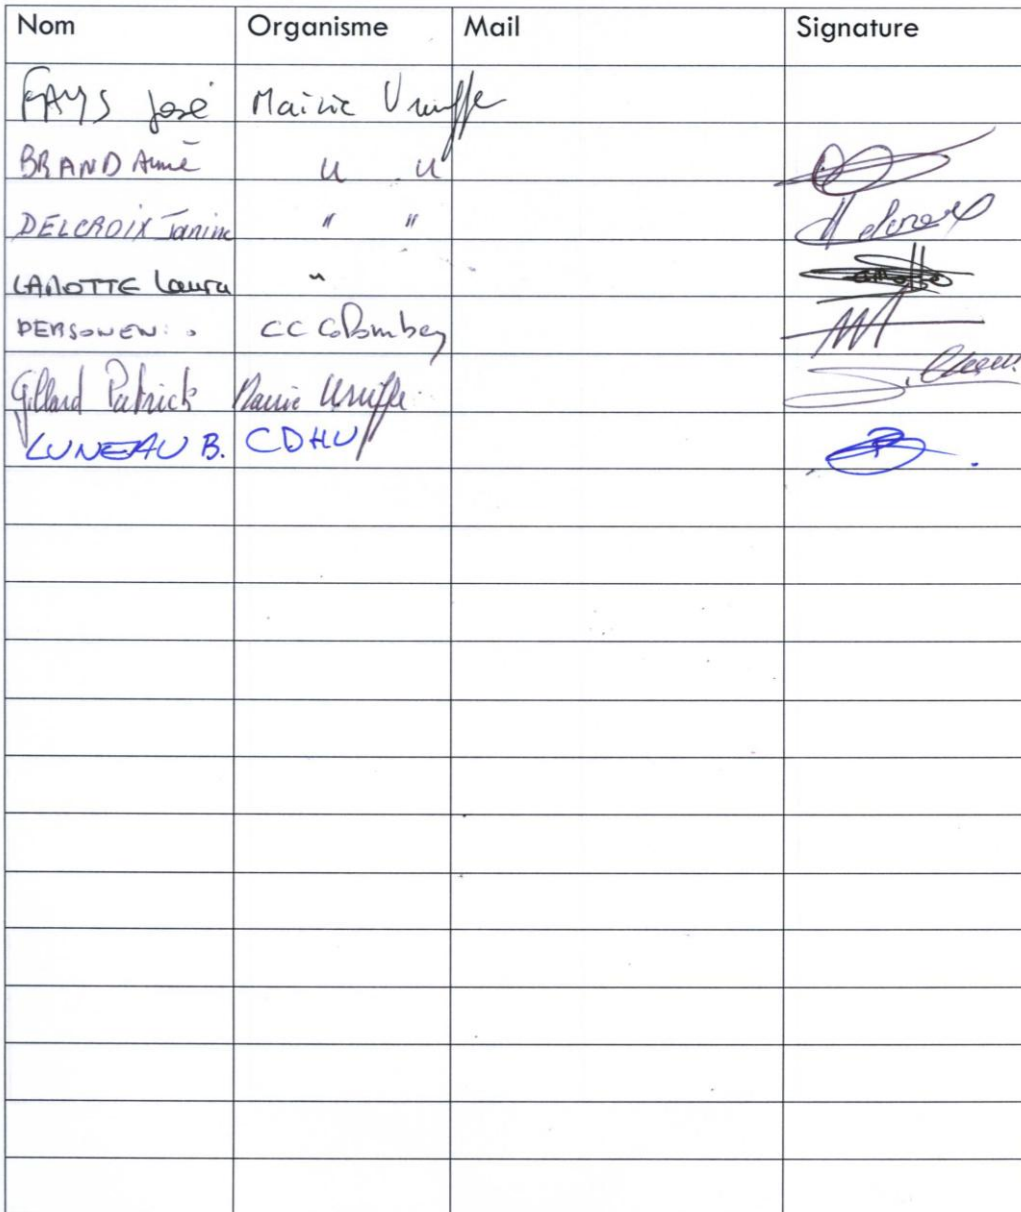 Nom Organisme Mail Signature
FAYS José Mairie Uruffe
BRAND Aimé " "
DELCROIX Janine " "
LAMOTTE Laura "
PERSONENI CC Colombey
Gillard Patrick Mairie Uruffe
LUNEAU B. CDHU